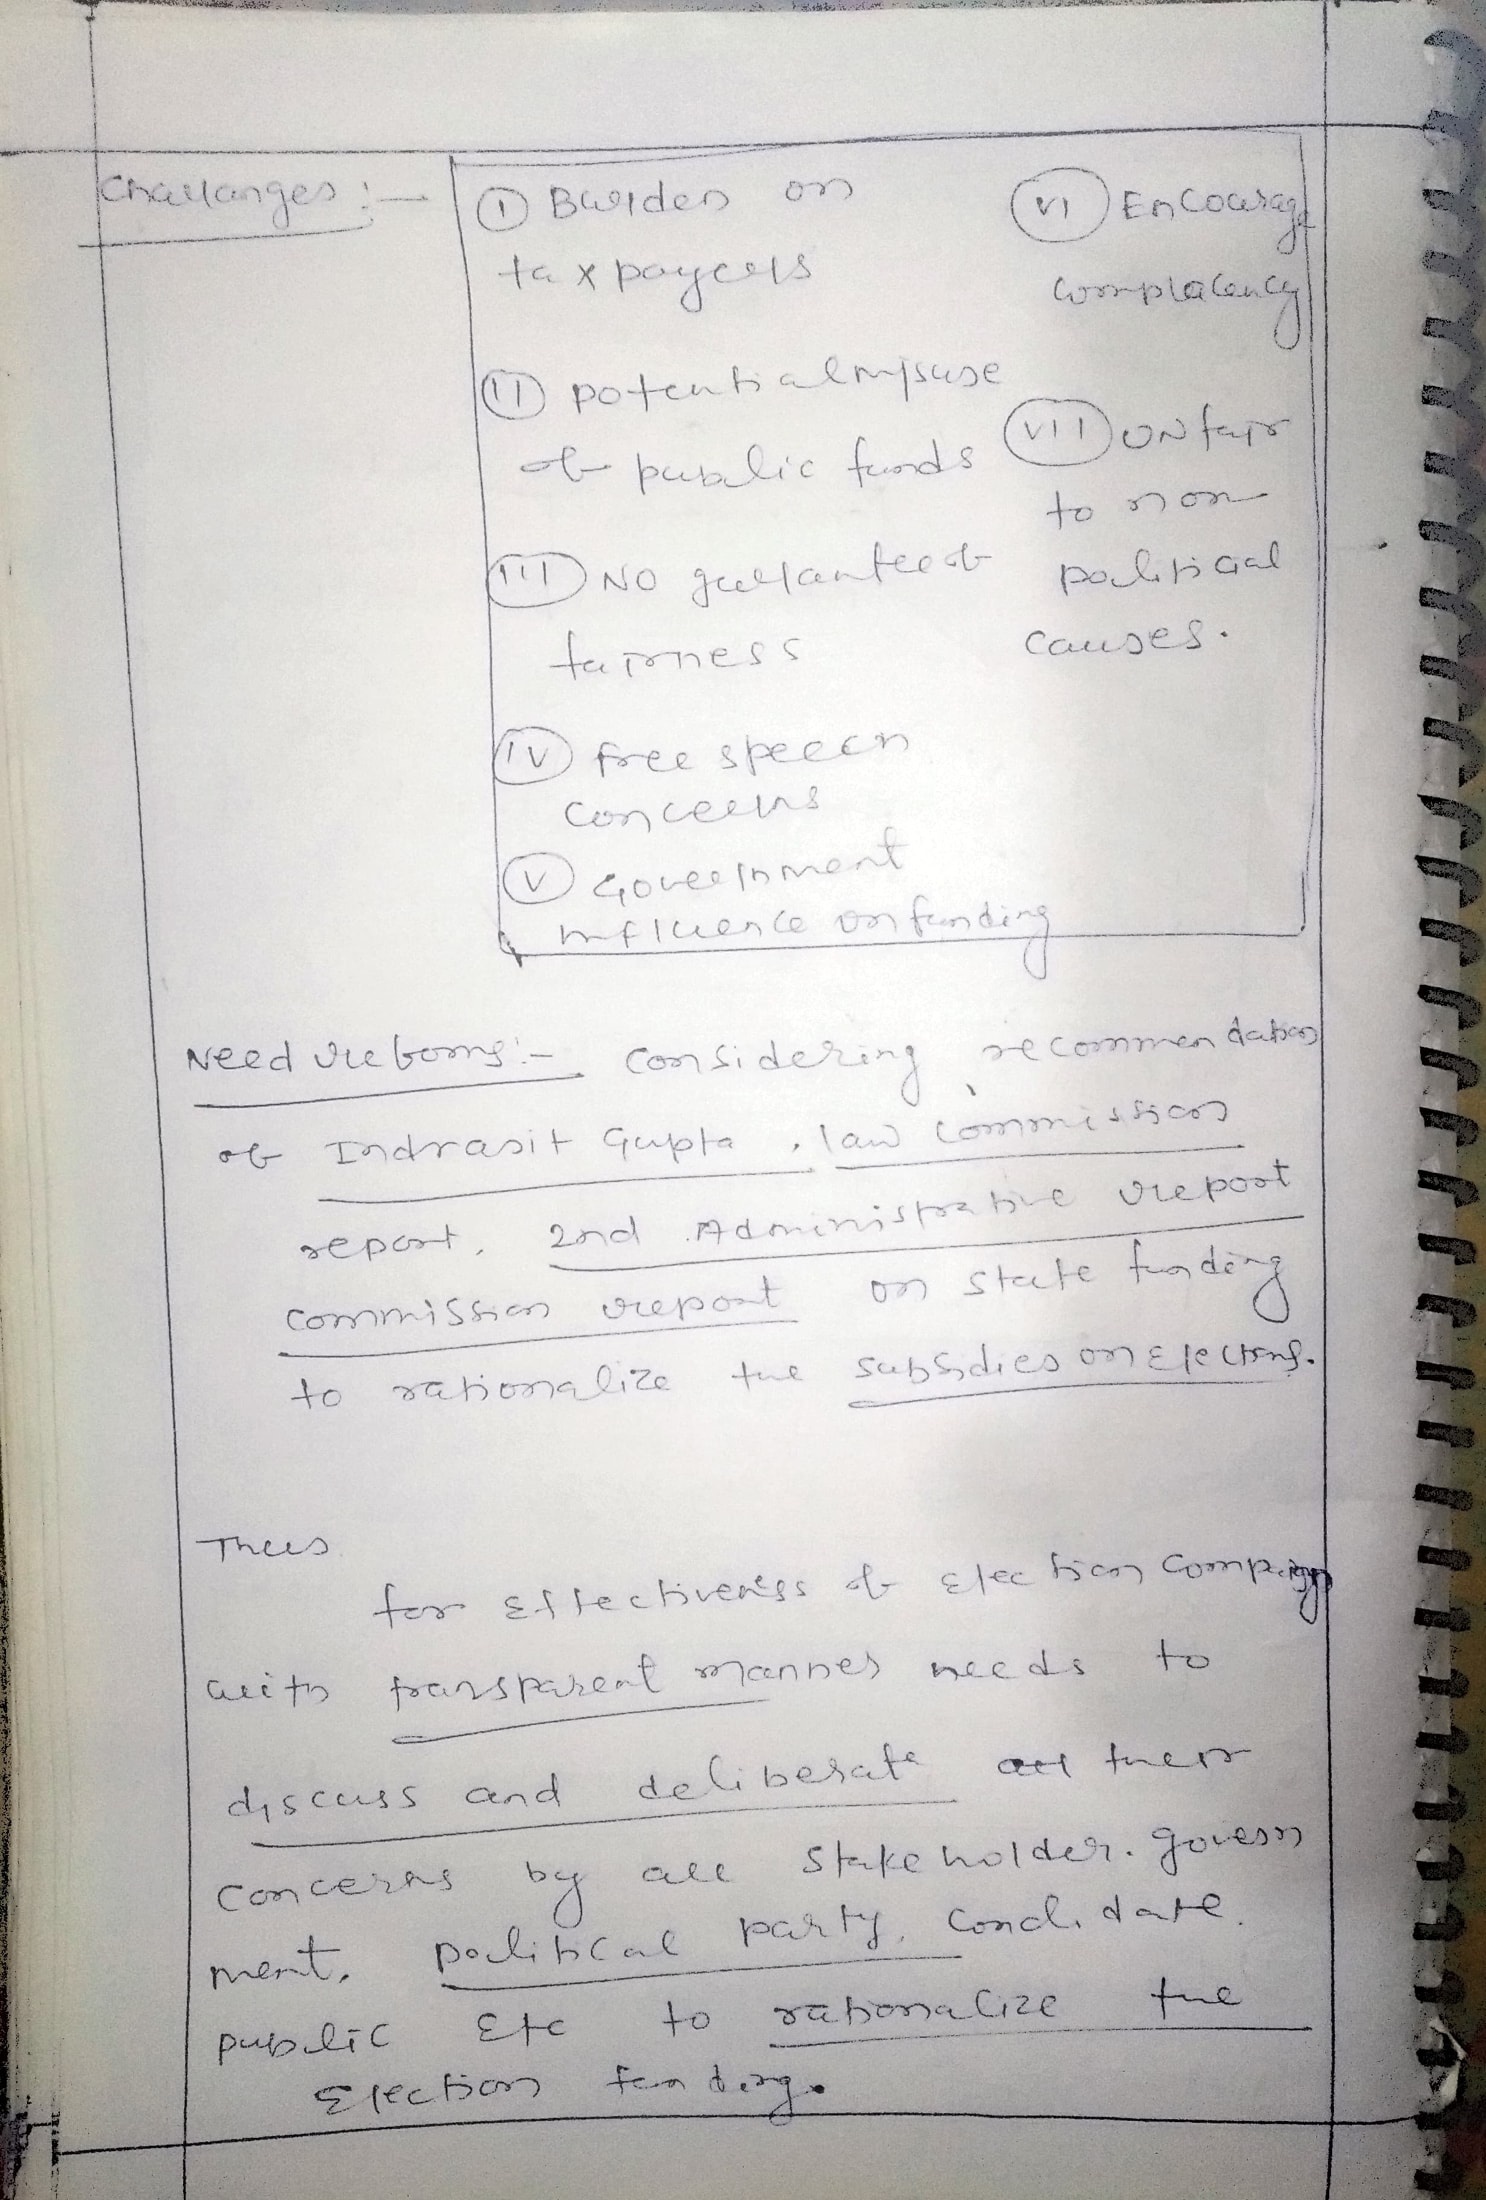 Challanges :-
① Burden on
taxpayers
(II) potential misuse
of public funds
(III) NO guarantee of
fairness
(IV) free speech
concerns
(V) Government
influence on funding
(VI) Encourage
complacency
(VII) UNfair
to non
political
causes.
Need reforms :- considering recommendation
of Indrasit Gupta, law commission
report, 2nd Administrative report
commission report on state funding
to rationalize the subsidies on Elections.
Thus
for Effectiveness of Election Compaign
with transparent manner needs to
discuss and deliberate all their
concerns by all stakeholder. govern
ment, political party, candidate,
public Etc to rationalize the
Election funding.